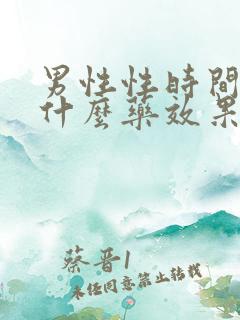 男性性時間
什麼藥效果
蔡晋1
未任同意禁止转载